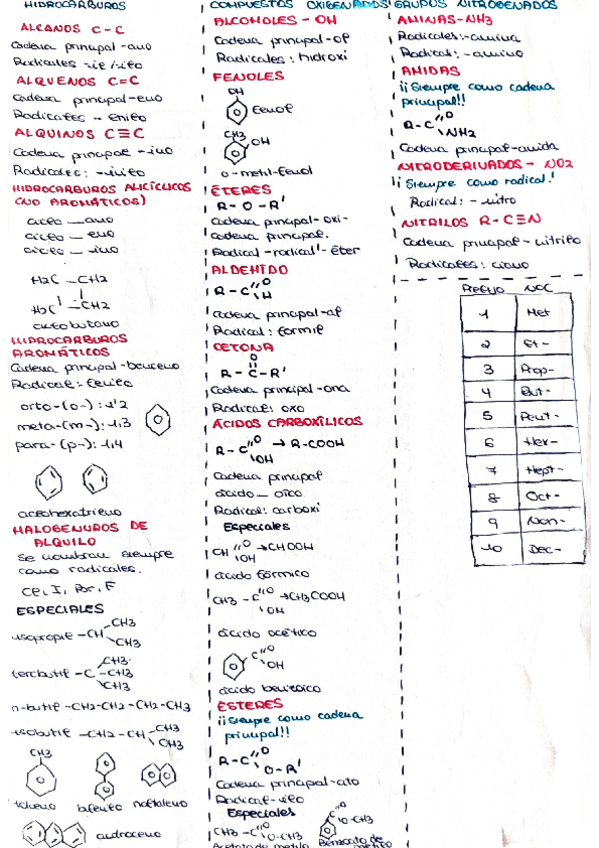 HIDROCARBUROS
ALCANOS C-C
Cadena principal -ano
Radicales -il/-ilo
ALQUENOS C=C
Cadena principal -eno
Radicales - enilo
ALQUINOS C≡C
Cadena principal -ino
Radicales: -inilo
HIDROCARBUROS ALICÍCLICOS
(NO AROMÁTICOS)
ciclo __ ano
ciclo __ eno
ciclo __ ino
H2C - CH2
H2C - CH2
ciclobutano
HIDROCARBUROS
AROMÁTICOS
Cadena principal -benceno
Radical: fenilo
orto-(o-): 1,2
meta-(m-): 1,3
para-(p-): 1,4
HALOGENUROS DE
ALQUILO
Se nombran siempre
como radicales.
Cl, I, Br, F
ESPECIALES
isopropil -CH
CH3
CH3
tercbutil -C
CH3
-CH3
CH3
n-butil -CH2-CH2-CH2-CH3
isobutil -CH2-CH
CH3
CH3
CH3
tolueno bifenilo naftaleno
antraceno
COMPUESTOS OXIGENADOS
ALCOHOLES - OH
Cadena principal -ol
Radicales: hidroxi
FENOLES
OH
fenol
CH3
OH
o-metil-fenol
ÉTERES
R-O-R'
Cadena principal -oxi-
cadena principal.
Radical -radical'- éter
ALDEHÍDO
R-C
O
H
Cadena principal -al
Radical: formil
CETONA
O
R-C-R'
Cadena principal -ona
Radical: oxo
ÁCIDOS CARBOXÍLICOS
R-C
O
OH
→ R-COOH
Cadena principal
ácido __ oico
Radical: carboxi
Especiales
CH
O
OH
→CHOOH
ácido fórmico
CH3 -C
O
OH
→CH3COOH
ácido acético
C
O
OH
ácido benzoico
ÉSTERES
¡¡Siempre como cadena
principal!!
R-C
O
O-R'
Cadena principal -ato
Radical -ilo
Especiales
CH3 -C
O
O-CH3
Acetato de metilo
C
O
O-CH3
Benzoato de
metilo
GRUPOS NITROGENADOS
AMINAS-NH3
Radicales: -amina
Radical: -amino
AMIDAS
¡¡Siempre como cadena
principal!!
R-C
O
NH2
Cadena principal -amida
NITRODERIVADOS - NO2
¡¡Siempre como radical!
Radical: -nitro
NITRILOS R-C≡N
Cadena principal -nitrilo
Radicales: ciano
PREFIJO NºC
1 Met
2 Et-
3 Prop-
4 But-
5 Pent-
6 Hex-
7 Hept-
8 Oct-
9 Non-
10 Dec-